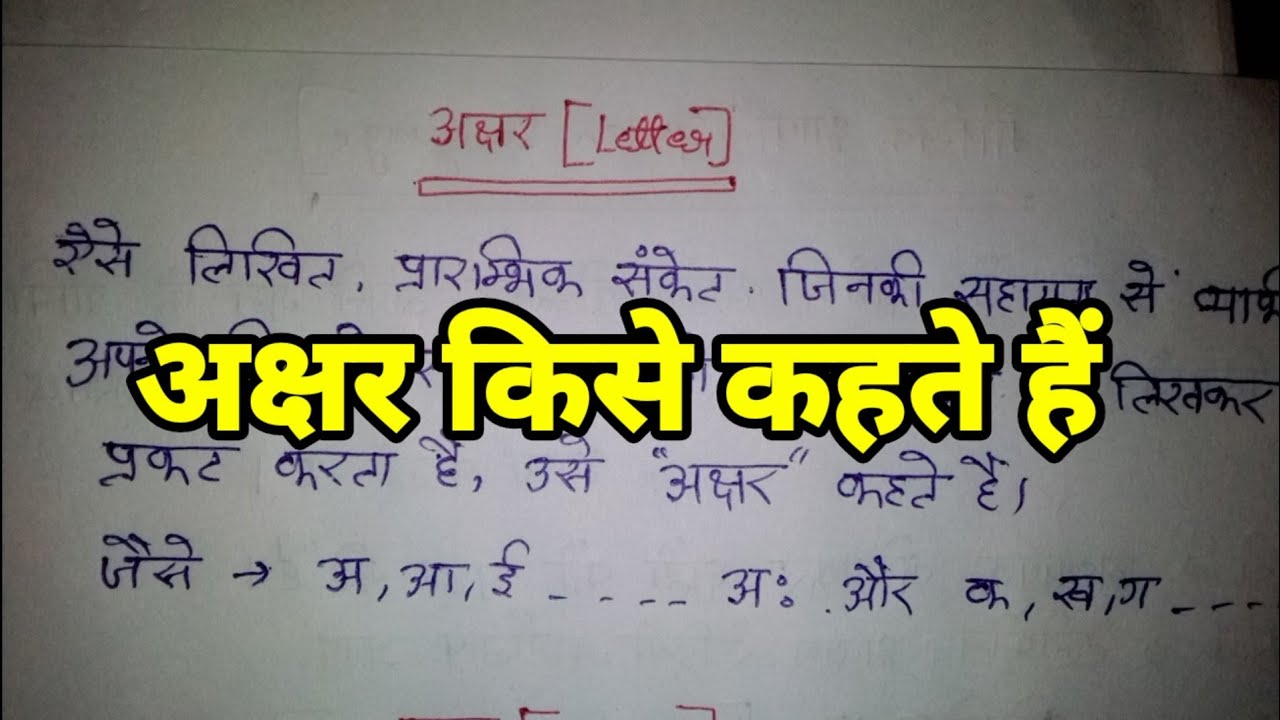 अक्षर [Letter]
ऐसे लिखित, प्रारम्भिक संकेत. जिनकी सहायता से
अक्षर किसे कहते हैं
लिखकर
प्रकट करता है, उसे "अक्षर" कहते है।
जैसे → अ, आ, ई - - - - अः . और क, ख, ग - - - -